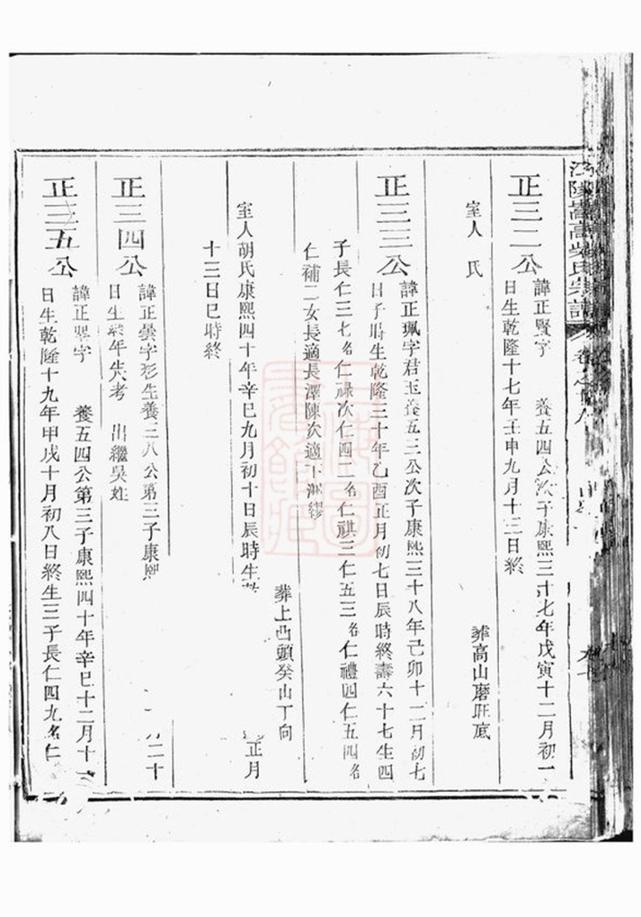 正三二公
諱正賢字 養五四公次子康熙三十七年戊寅十二月初一
日生乾隆十七年壬申九月十三日終
葬高山磨旺底
室人 氏
正三三公
諱正珮字君玉養五三公次子康熙三十八年己卯十二月初七
日子時生乾隆三十年乙酉正月初七日辰時終壽六十七生四
子長仁三七名仁祿次仁四二名仁祺三仁五三名仁禮四仁五四名
仁補二女長適長澤陳次適下 繆
葬上凸頭癸山丁向
室人胡氏康熙四十年辛巳九月初十日辰時生 正月
十三日巳時終
正三四公
諱正曇字彩生養二八公第三子康熙 二十
日生 年失考 出繼吳姓
正三五公
諱正 字 養五四公第三子康熙四十年辛巳十二月十
日生乾隆十九年甲戌十月初八日終生三子長仁四九名仁